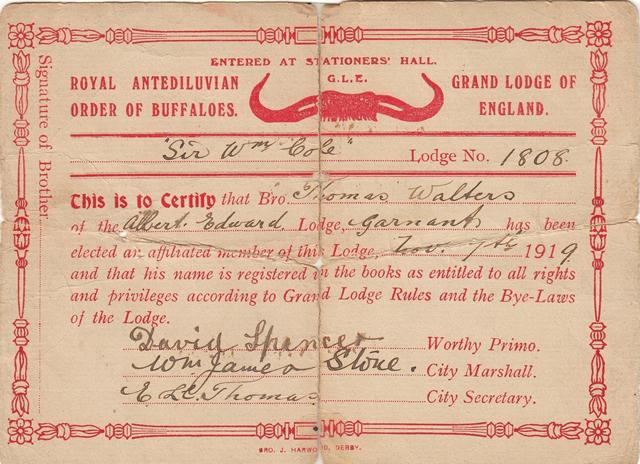 ENTERED AT STATIONERS' HALL.
ROYAL ANTEDILUVIAN ORDER OF BUFFALOES.
G.L.E.
GRAND LODGE OF ENGLAND.
"Sir Wm Cole" Lodge No. 1808.
This is to Certify that Bro. Thomas Walters
of the Albert Edward Lodge, Garnant has been
elected an affiliated member of this Lodge, Nov. 7th 1919
and that his name is registered in the books as entitled to all rights
and privileges according to Grand Lodge Rules and the Bye-Laws
of the Lodge.
David Spencer Worthy Primo.
Wm James Stone. City Marshall.
E Thomas City Secretary.
Signature of Brother
BRO. J. HARWOOD, DERBY.